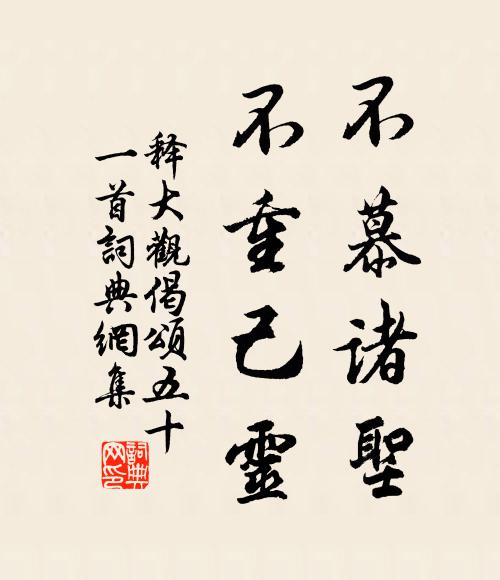 不慕諸聖
不重己靈
释大觀偈頌五十
一首詞典網集
詞典网印